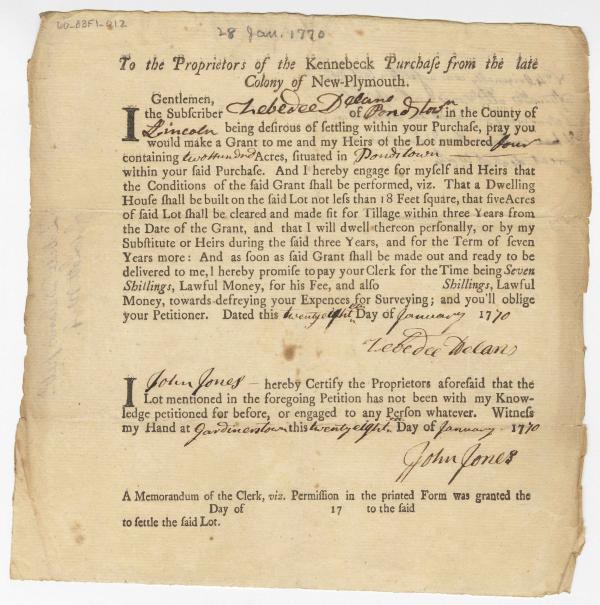 28 Jan. 1770
To the Proprietors of the Kennebeck Purchaſe from the late
Colony of New-Plymouth.
Gentlemen,
I the Subſcriber Zebedee Delano of Pondstown in the County of
Lincoln being deſirous of ſettling within your Purchaſe, pray you
would make a Grant to me and my Heirs of the Lot numbered four
containing two Hundred Acres, ſituated in Pondstown
within your ſaid Purchaſe. And I hereby engage for myſelf and Heirs that
the Conditions of the ſaid Grant ſhall be performed, viz. That a Dwelling
Houſe ſhall be built on the ſaid Lot not leſs than 18 Feet ſquare, that five Acres
of ſaid Lot ſhall be cleared and made fit for Tillage within three Years from
the Date of the Grant, and that I will dwell thereon perſonally, or by my
Subſtitute or Heirs during the ſaid three Years, and for the Term of ſeven
Years more: And as ſoon as ſaid Grant ſhall be made out and ready to be
delivered to me, I hereby promiſe to pay your Clerk for the Time being Seven
Shillings, Lawful Money, for his Fee, and alſo Shillings, Lawful
Money, towards defreying your Expences for Surveying; and you'll oblige
your Petitioner. Dated this twenty eight Day of January 1770
Zebedee Delano
I John Jones — hereby Certify the Proprietors aforeſaid that the
Lot mentioned in the foregoing Petition has not been with my Know-
ledge petitioned for before, or engaged to any Perſon whatever. Witneſs
my Hand at Gardinerstown this twenty eight Day of January 1770
John Jones
A Memorandum of the Clerk, viz. Permiſſion in the printed Form was granted the
Day of 17 to the ſaid
to ſettle the ſaid Lot.